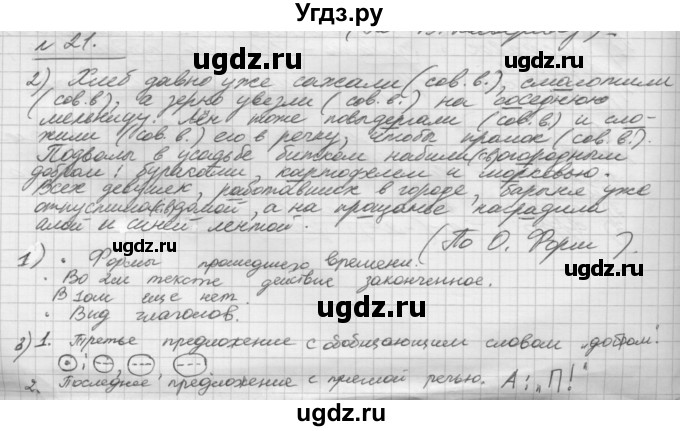 Угдз.ру
(По В. )
№ 21.
2) Хлеб давно уже сажали (сов. в.), смолотили
(сов. в), а зерно увезли (сов. в.) на соседнюю
мельницу. Лён тоже повыдергали (сов. в) и сло-
жили (сов. в.) его в речку, чтобы промок (сов. в.).
Подвалы в усадьбе битком набили огородным
добром: бураками, картофелем и морковью.
Всех девушек, работавших в городе, барыня уже
отпустила домой, а на прощанье наградила
алой и синей лентой.
(По О. Форш).
1) • Формы прошедшего времени.
• Во 2ом тексте действие законченное.
В 1ом еще нет.
• Вид глаголов.
3) 1. Третье предложение с обобщающим словом „добром".
2. Последнее предложение с прямой речью. А: „П!"
ugdz.ru
ugdz.ru ugdz.ru
ugdz.ru
ugdz.ru ugdz.ru
ugdz.ru
ugdz.ru ugdz.ru
ugdz.ru